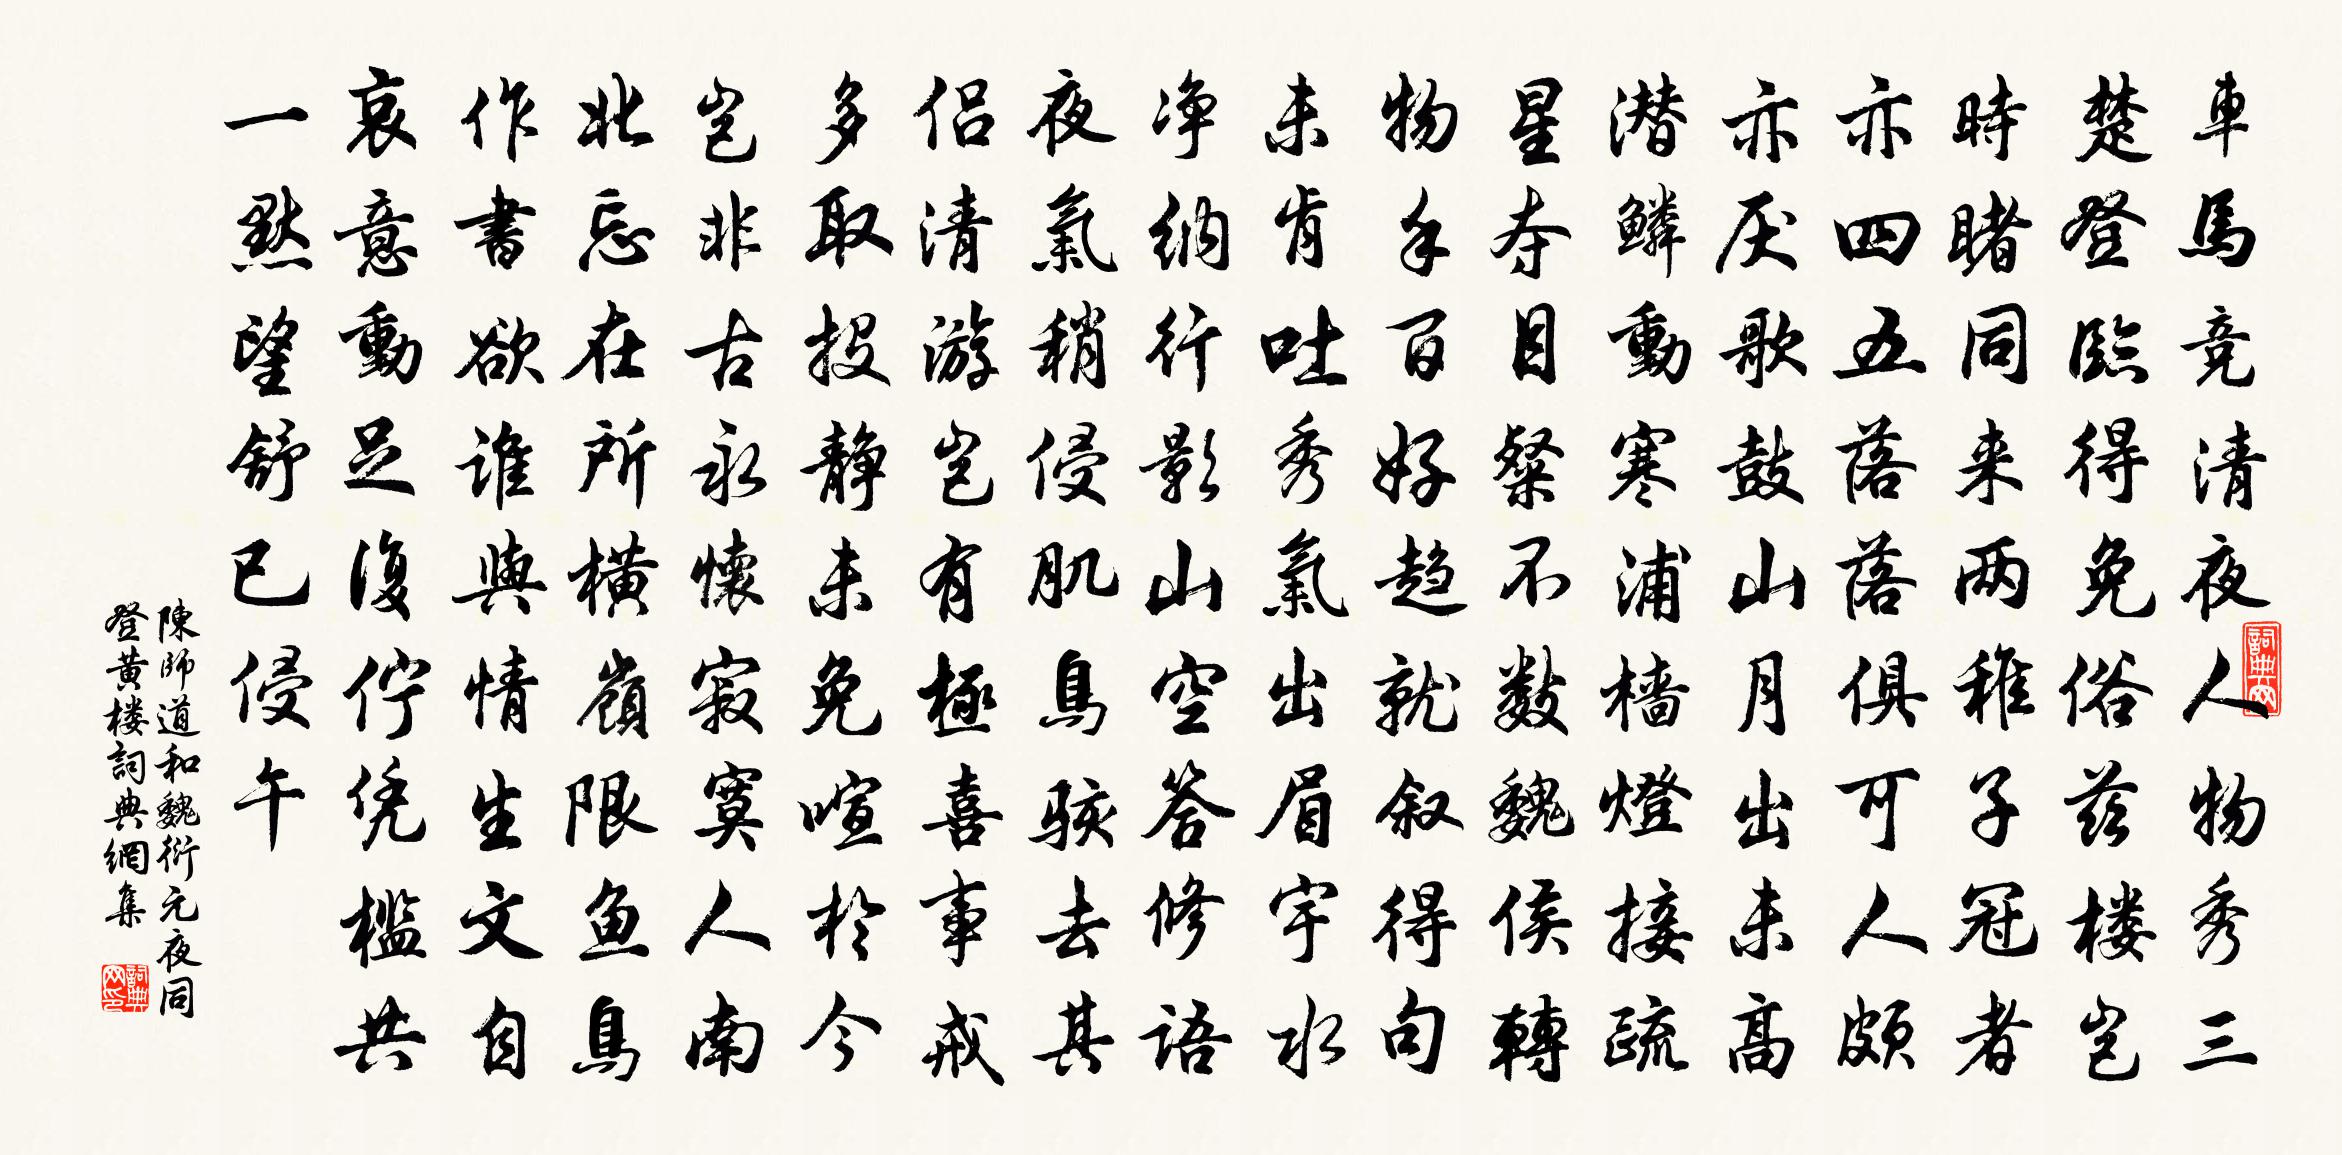 車馬竞清夜人物秀三
楚登臨得免俗茲楼豈
時睹同来两稚子冠者
亦四五落落俱可人頗
亦厌歌鼓山月出未高
潜鳞動寒浦檣燈接疏
星夺目粲不数魏侯轉
物手百好趋就叙得句
未肯吐秀氣出眉宇水
净纳行影山空答修語
夜氣稍侵肌鳥骇去其
侣清游豈有極喜事戒
多取投静未免喧於今
豈非古永懷寂寞人南
北忘在所横嶺限鱼鳥
作書欲谁與情生文自
哀意動足復佇凭槛共
一默望舒已侵午
陳師道和魏衍元夜同
登黄楼詞典網集
詞典网
詞典网印